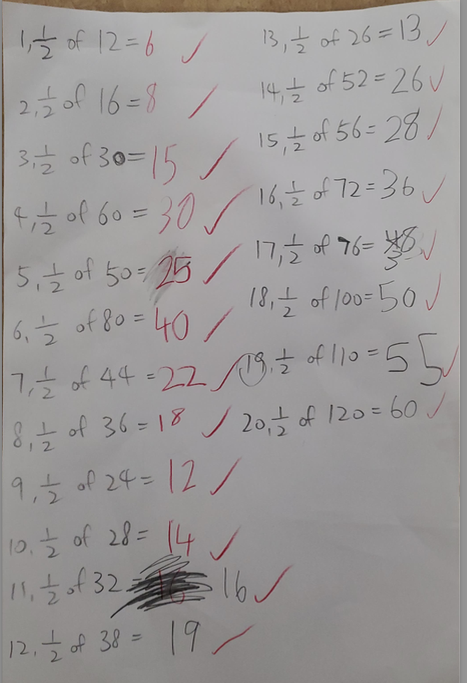 1, 1/2 of 12 = 6
2, 1/2 of 16 = 8
3, 1/2 of 30 = 15
4, 1/2 of 60 = 30
5, 1/2 of 50 = 25
6, 1/2 of 80 = 40
7, 1/2 of 44 = 22
8, 1/2 of 36 = 18
9, 1/2 of 24 = 12
10, 1/2 of 28 = 14
11, 1/2 of 32 = 16
12, 1/2 of 38 = 19
13, 1/2 of 26 = 13
14, 1/2 of 52 = 26
15, 1/2 of 56 = 28
16, 1/2 of 72 = 36
17, 1/2 of 76 = 38
18, 1/2 of 100 = 50
19, 1/2 of 110 = 55
20, 1/2 of 120 = 60